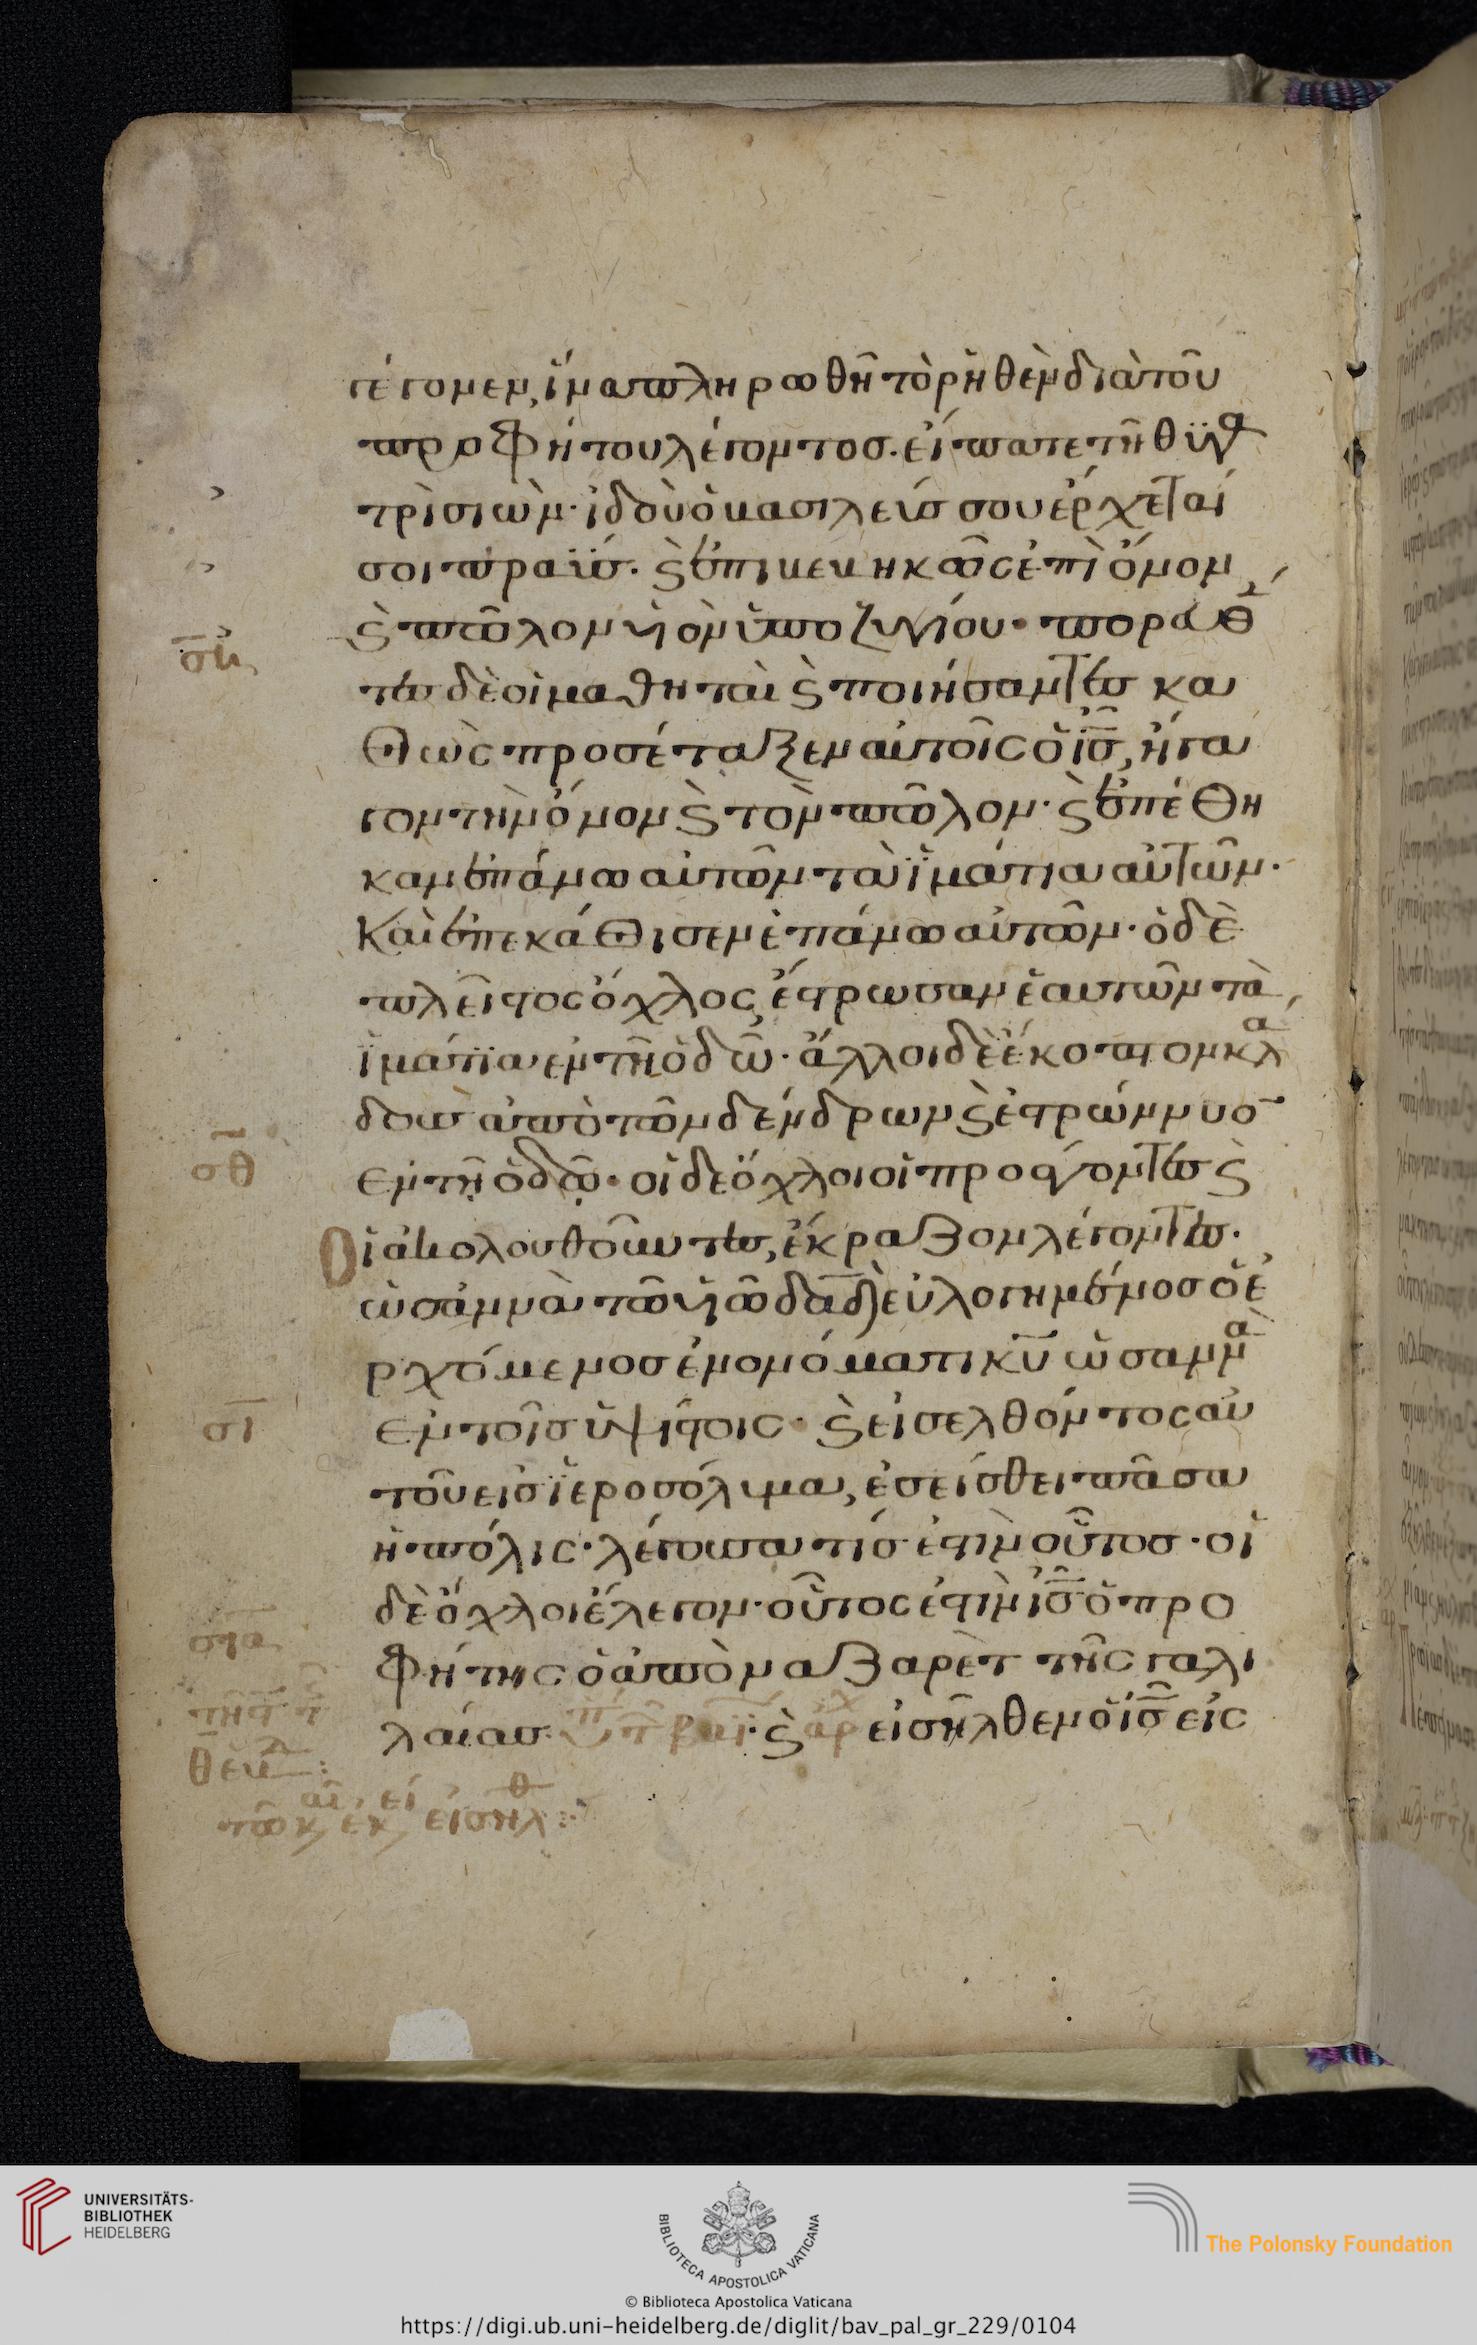 γέγονεν, ἵνα πληρωθῆ τὸ ῥηθὲν διὰ τοῦ
προφήτου λέγοντοσ. εἴπατε τῆ θυγα
τρὶ σιὼν· ἰδοὺ ὁ βασιλεύσ σου ἔρχεταί
σοι πραΰσ. ϗ ἐπιβεβηκῶς ἐπὶ ὄνον
ϗ πῶλον υἱὸν ὑποζυγίου· πορευθέ
σ̅η̅
τεσ δὲ οἱ μαθηταὶ ϗ ποιήσαντεσ κα
θὼς προσέταξεν αὐτοῖς ὁ ι̅σ̅, ἤγα
γον τὴν ὄνον ϗ τὸν πῶλον· ϗ ἐπέθη
καν ἐπάνω αὐτῶν τὰ ἱμάτια αὐτῶν·
Καὶ ἐπεκάθισεν ἐπάνω αὐτῶν· ὁ δὲ
πλεῖστος ὄχλος, ἔστρωσαν ἑαυτῶν τὰ
ἱμάτια ἐν τῆ ὁδῶ· ἄλλοι δὲ ἔκοπτον κλα
δουσ ἀπὸ τῶν δένδρων ϗ ἐστρώννυο̅
σ̅θ̅
ἐν τῆ ὁδῶ· οἱ δὲ ὄχλοι οἱ προάγοντεσ ϗ
Οἱ ἀκολουθοῦντεσ, ἔκραζον λέγοντεσ·
ὡσάννὰ τῶ υἱῶ δα̅δ̅ εὐλογημένοσ ὁ ἐ
ρχόμενοσ ἐν ὀνόματι κ̅υ̅ ὡσαννὰ
σ̅ι̅
ἐν τοῖσ ὑψίστοις· ϗ εἰσελθόντος αὐ
τοῦ εἰσ ἱεροσόλιμα, ἐσείσθει πᾶσα
ἡ πόλις· λέγουσα τίσ ἐστὶν οὗτοσ· οἱ
δὲ ὄχλοι ἔλεγον· οὗτος ἐστὶν ι̅σ̅ ὁ προ
σ̅ι̅α̅
φήτης ὁ ἀπὸ ναζαρὲτ τῆς γαλι
λαίασ. · ϗ ἀρχ εἰσῆλθεν ὁ ι̅σ̅ εἰς
εἰσῆλθ
UNIVERSITÄTS-
BIBLIOTHEK
HEIDELBERG
BIBLIOTECA APOSTOLICA VATICANA
The Polonsky Foundation
© Biblioteca Apostolica Vaticana
https://digi.ub.uni-heidelberg.de/diglit/bav_pal_gr_229/0104